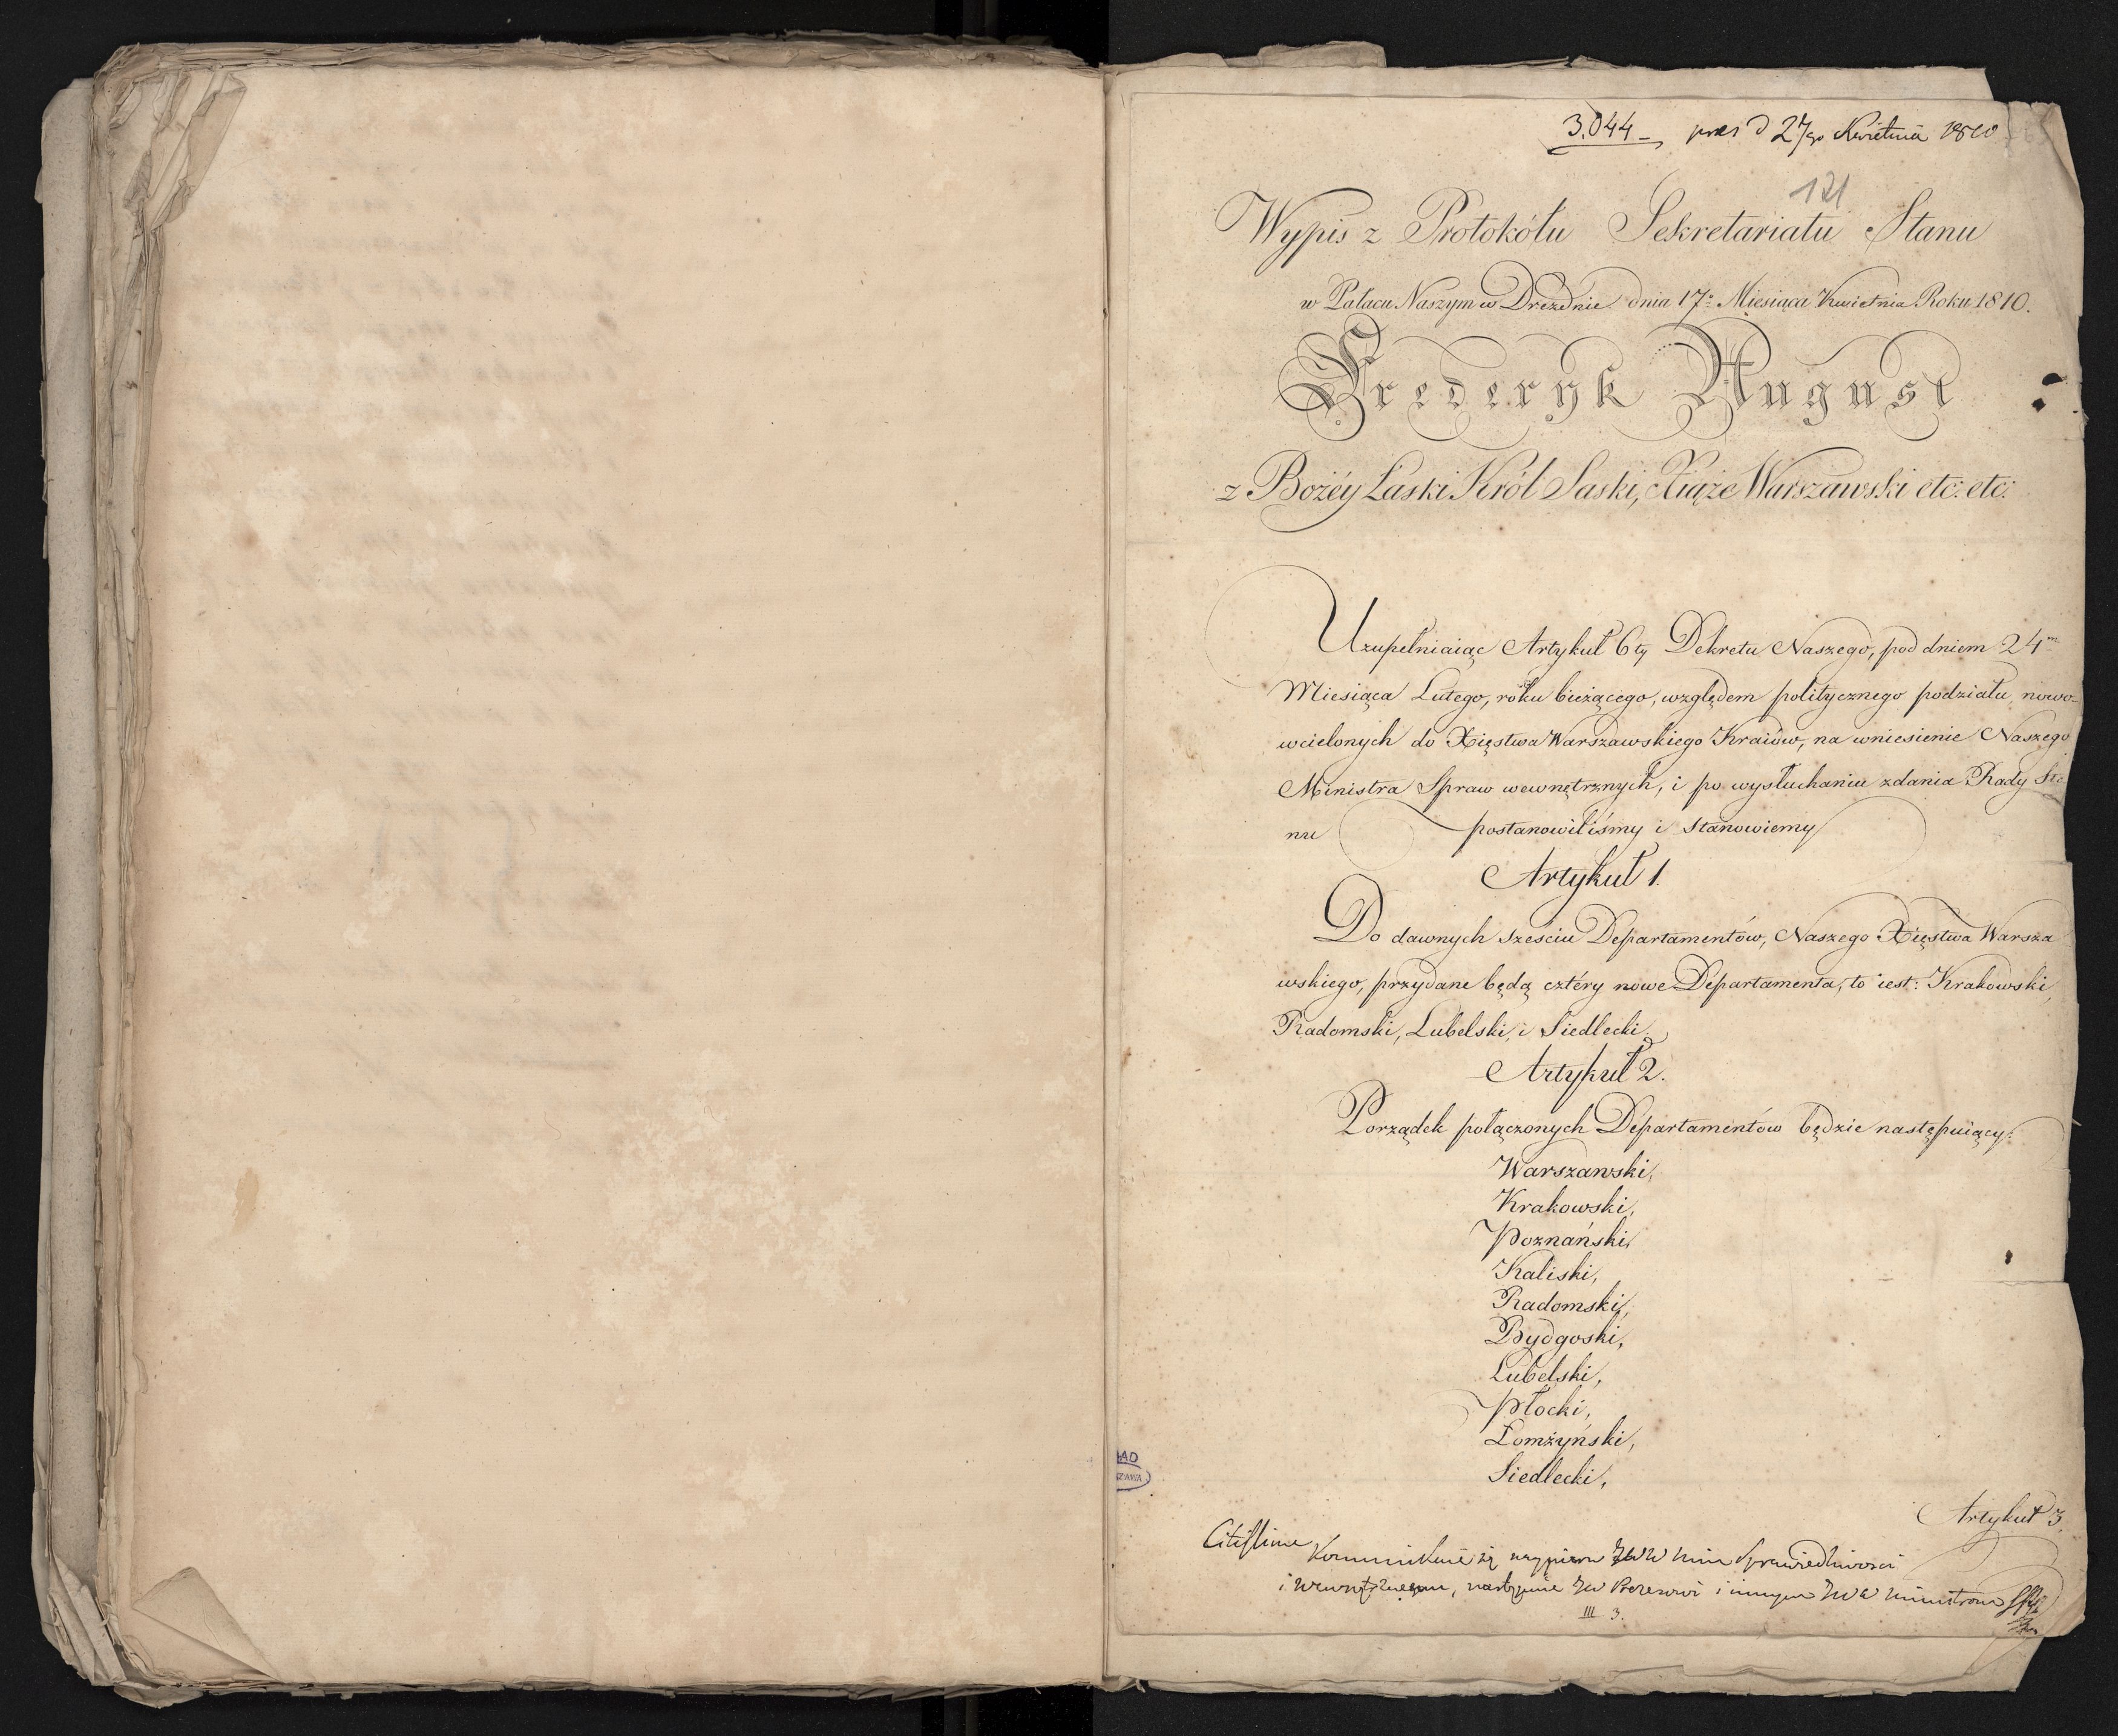 3.044 – pres d 27go Kwietnia 1810
121
Wypis z Protokółu Sekretariatu Stanu
w Pałacu Naszym w Dreźdnie dnia 17º Miesiąca Kwietnia Roku 1810.
Frederyk August
z Bożéy Łaski Król Saski, Xiąże Warszawski etc: etc:
Uzupełniaiąc Artykuł 6ty Dekretu Naszego, pod dniem 24m
Miesiąca Lutego, roku bieżącego, względem politycznego podziału nowo-
wcielonych do Xięstwa Warszawskiego Kraiów, na wniesienie Naszego
Ministra Spraw wewnętrznych, i po wysłuchaniu zdania Rady Sta
nu postanowiliśmy i stanowiemy
Artykuł 1.
Do dawnych sześciu Departamentów, Naszego Xięstwa Warsza
wskiego, przydane będą cztéry nowe Departamenta, to iest: Krakowski,
Radomski, Lubelski, i Siedlecki.
Artykuł 2.
Porządek połączonych Departamentów będzie następuiący:
Warszawski,
Krakowski,
Poznański,
Kaliski,
Radomski,
Bydgoski,
Lubelski,
Płocki,
Łomżyński,
Siedlecki,
Artykuł 3.
Citissime
kommunikuie się wypisem JWW Min Sprawiedliwości
i wewnętrznemu, następnie JW Prezesowi i innym JWW Ministrom
III 3.
AD
ZAWA